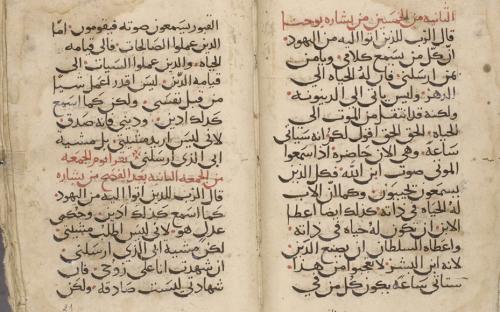 الثانيه من الخمسين من بشاره يوحنا
قال الرب للذين اتوا اليه من اليهود
ان كل من يسمع كلامي ويامن
بمن ارسلني فان له الحياه الى
الدهر وليس ياتي الى الدينونه
ولكنه قد انتقل من الموت الى
الحياه الحق الحق اقول لكم انه ستاتي
ساعه وهي الان حاضره اذا سمعوا
الموتى صوت ابن الله فكل الذين
يسمعون يحيون وكما ان الاب
له الحياه في ذاته كذلك ايضا اعطا
الابن ان يكون له حياه في ذاته
واعطاه السلطان ان يصنع الدين
لانه ابن البشر لا تعجبوا من هذا
ستاتي ساعه يكون كل من في
القبور يسمعون صوته فيقومون اما
الذين عملوا الصالحات فالى قيامه
الحياه والذين عملوا السيات الى
قيامه الدين ليس اقدر اعمل شيا
من قبل نفسي ولكن كما اسمع
كذلك ادين وديني فانه صدق
لاني ليس اريد مشيتي بل مشيه
ابي الذي ارسلني يقرا يوم الجمعه
من الجمعه الثانيه بعد الفصح من بشاره
قال الرب للذين اتوا اليه من اليهود
كما اسمع كذلك ادين وحكمي
عدل هو لاني ليس اطلب مشيتي
لكن مشيه ابي الذي ارسلني
ان شهدت انا على روحي فان
شهادتي ليست صادقه ولكن